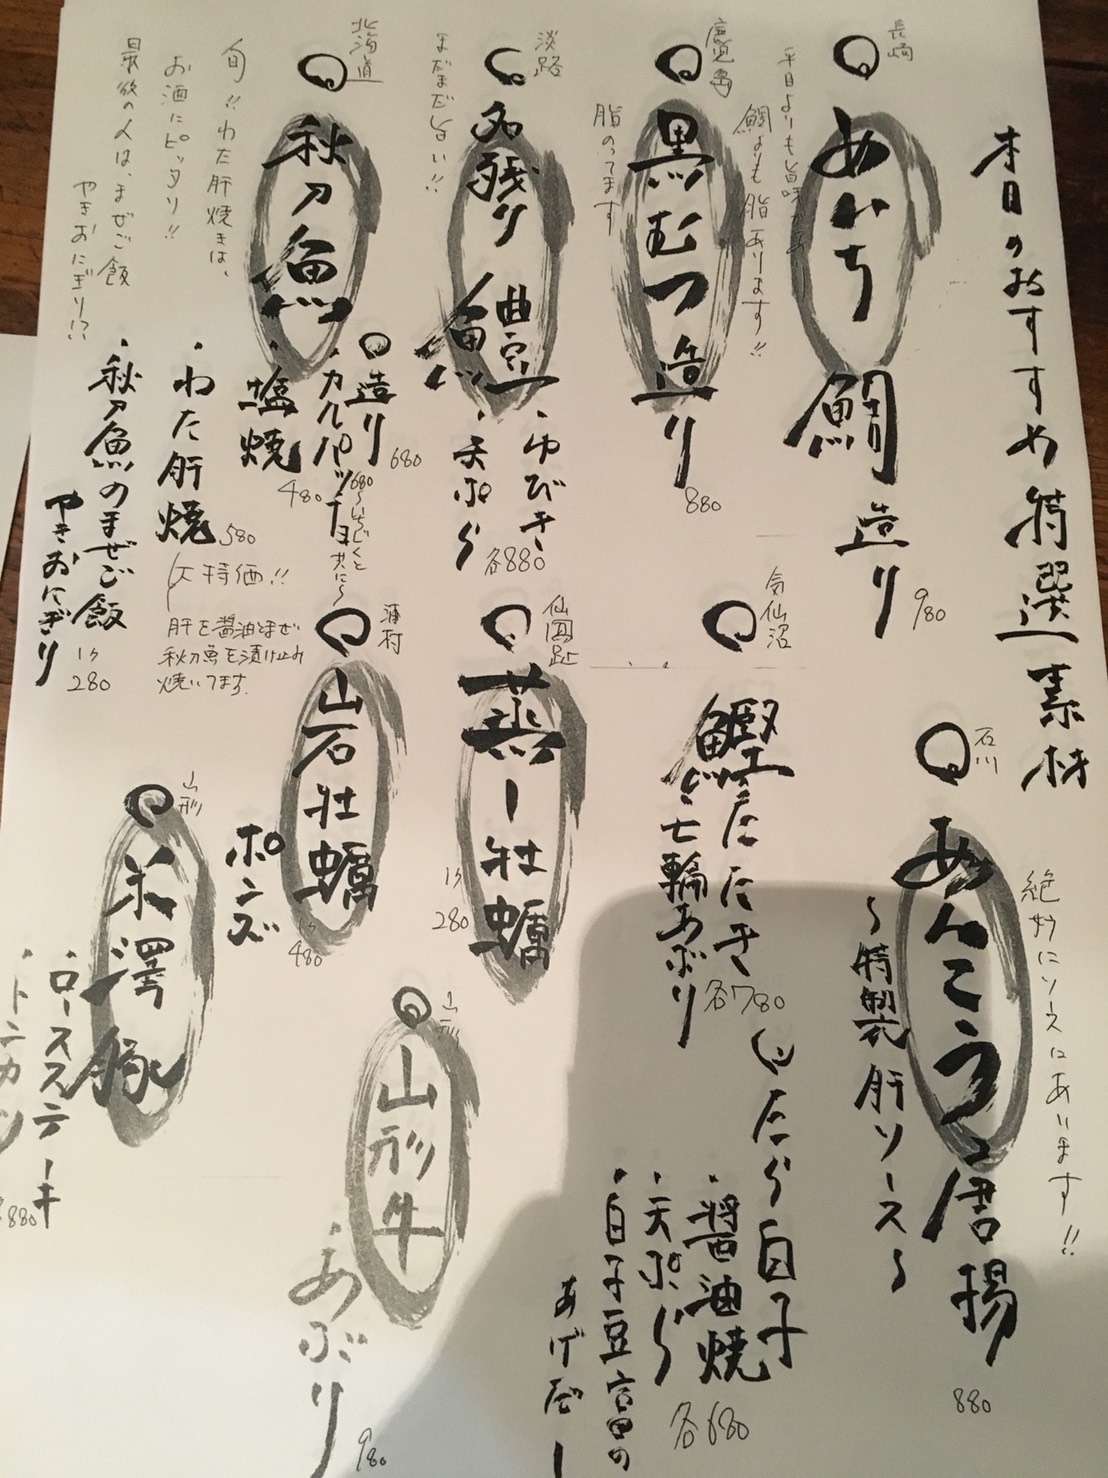 本日のおすすめ特選素材
長崎
めいち鯛造り
980
平日よりも旨味
鯛よりも脂あります!!
鹿児島
黒むつ造り
880
脂のってます
淡路
名残り鱧
・ゆびき
・天ぷら
各880
まだまだ旨い!!
北海道
秋刀魚
造り
680
・カルパッチョ
680
〜いちじくと共に〜
・塩焼
480
・わた肝焼
580
大特価!!
肝を醤油とまぜ
秋刀魚を漬け込み
焼いてます
・秋刀魚のまぜご飯
やきおにぎり
1ケ
280
旬!!わた肝焼きは、
お酒にピッタリ!!
最後の人は、まぜご飯
やきおにぎり!?
石川
あんこう唐揚
〜特製肝ソース〜
880
絶対にソースにあいます!!
気仙沼
鰹たたき
・七輪あぶり
各780
たら白子
・醤油焼
・天ぷら
各680
・白子豆富の
あげだし
蒸し牡蠣
1ケ
280
浦村
岩牡蠣
ポンズ
480
山形
山形牛
・あぶり
980
山形
米澤豚
・ロースステーキ
・トンカツ
880